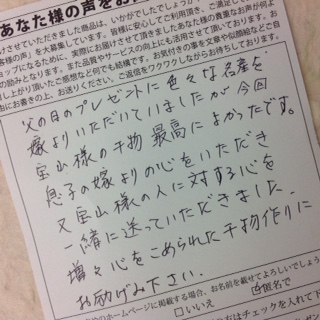 あなた様の声をお
けさせていただきました商品は、いかがでしたでしょうか。
客様の声」を大募集しています。皆様に安心してご利用頂き、ご満足して
ョップになるために、実際にお届けさせて頂きましたあなた様の貴重なお声が何よ
の励みとなります。また品質やサービスの向上にも活用させて頂いております。
し上がり頂いたご感想など何でも結構です。お気付きの事を文章や似顔絵などご自
にお書きの上、お送りください。ご返信をワクワクしながらお待ちしております。
父の日のプレゼントに色々な名産を
嫁よりいただいていましたが今回
宝山様の干物最高によかったです。
息子の嫁よりの心をいただき
又宝山様の人に対する心を
一緒に送っていただきました。
増々心をこめられた干物作りに
お励げみ下さい。
のホームページに掲載する場合、お名前を載せてよろしいでしょう
□いいえ
匿名で
方はチェックを入れて下